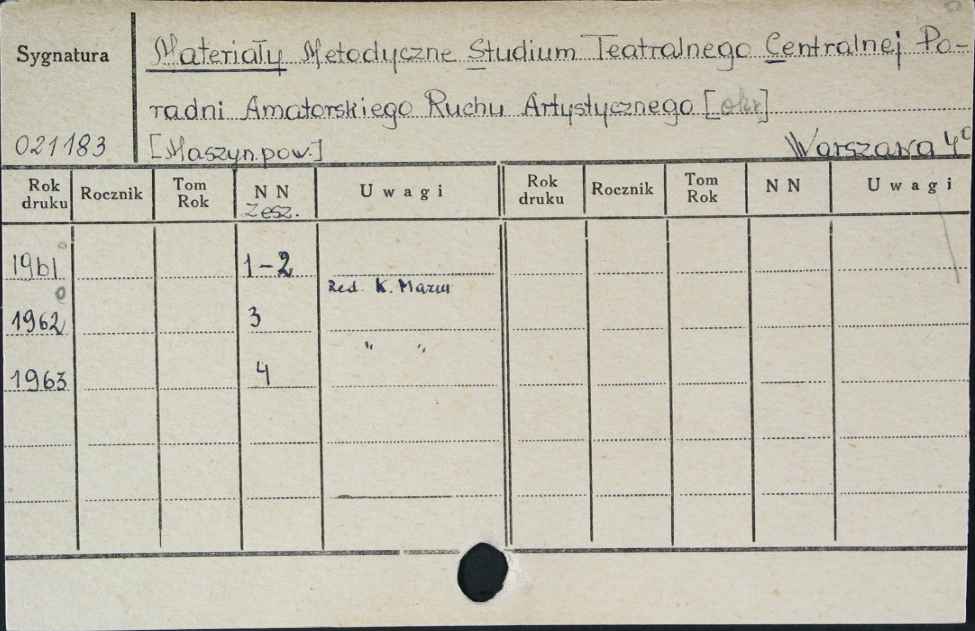 Sygnatura
Materiały Metodyczne Studium Teatralnego Centralnej Po-
radni Amatorskiego Ruchu Artystycznego [okr]
021183 [Maszyn.pow.] Warszawa 4°
Rok druku Rocznik Tom Rok NN Zesz. Uwagi Rok druku Rocznik Tom Rok NN Uwagi
1961 1-2
Red. K.
1962 3
" "
1963 4